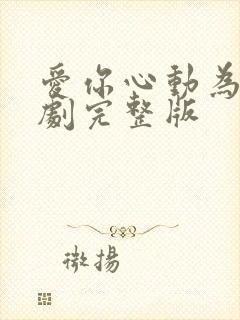 愛你心動為
劇完整版
微揚